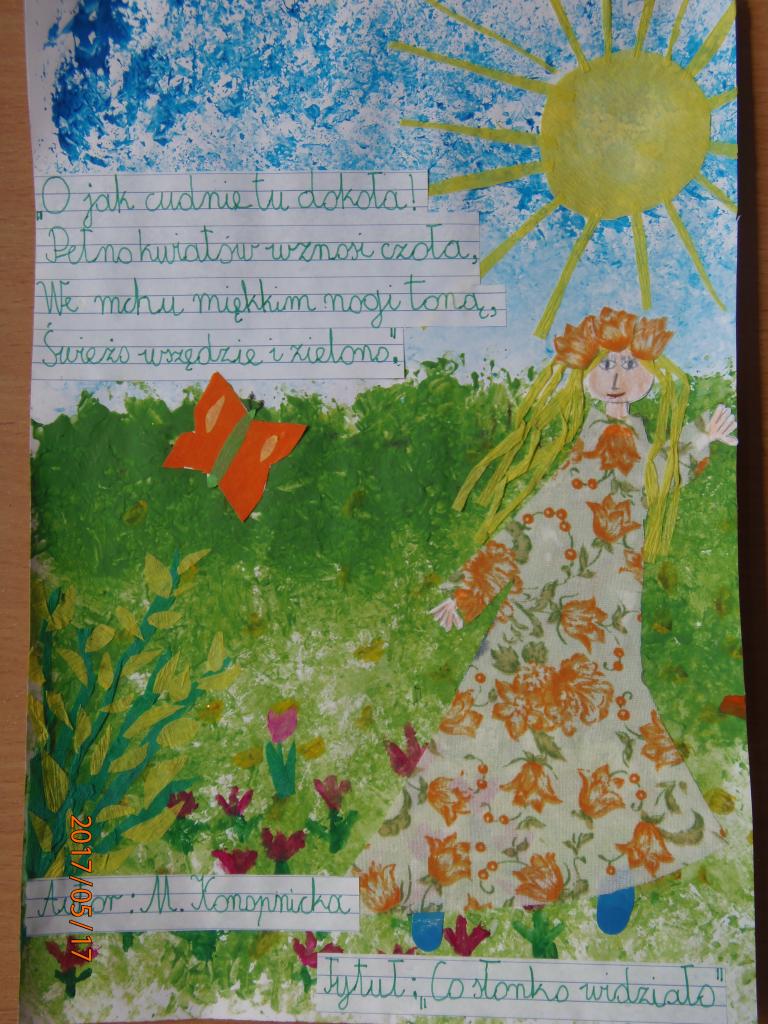 „O jak cudnie tu dokoła!
Pełno kwiatów wznosi czoła,
We mchu miękkim nogi toną,
Świeżo wszędzie i zielono."
Autor: M. Konopnicka
Tytuł: „Co słonko widziało"
2017/05/17